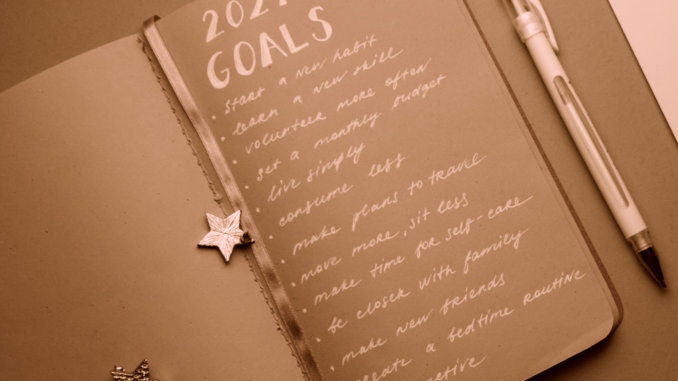 GOALS
• start a new habit
• learn a new skill
• volunteer more often
• set a monthly budget
• live simply
• consume less
• make plans to travel
• move more, sit less
• make time for self-care
• be closer with family
• make new friends
create a bedtime routine